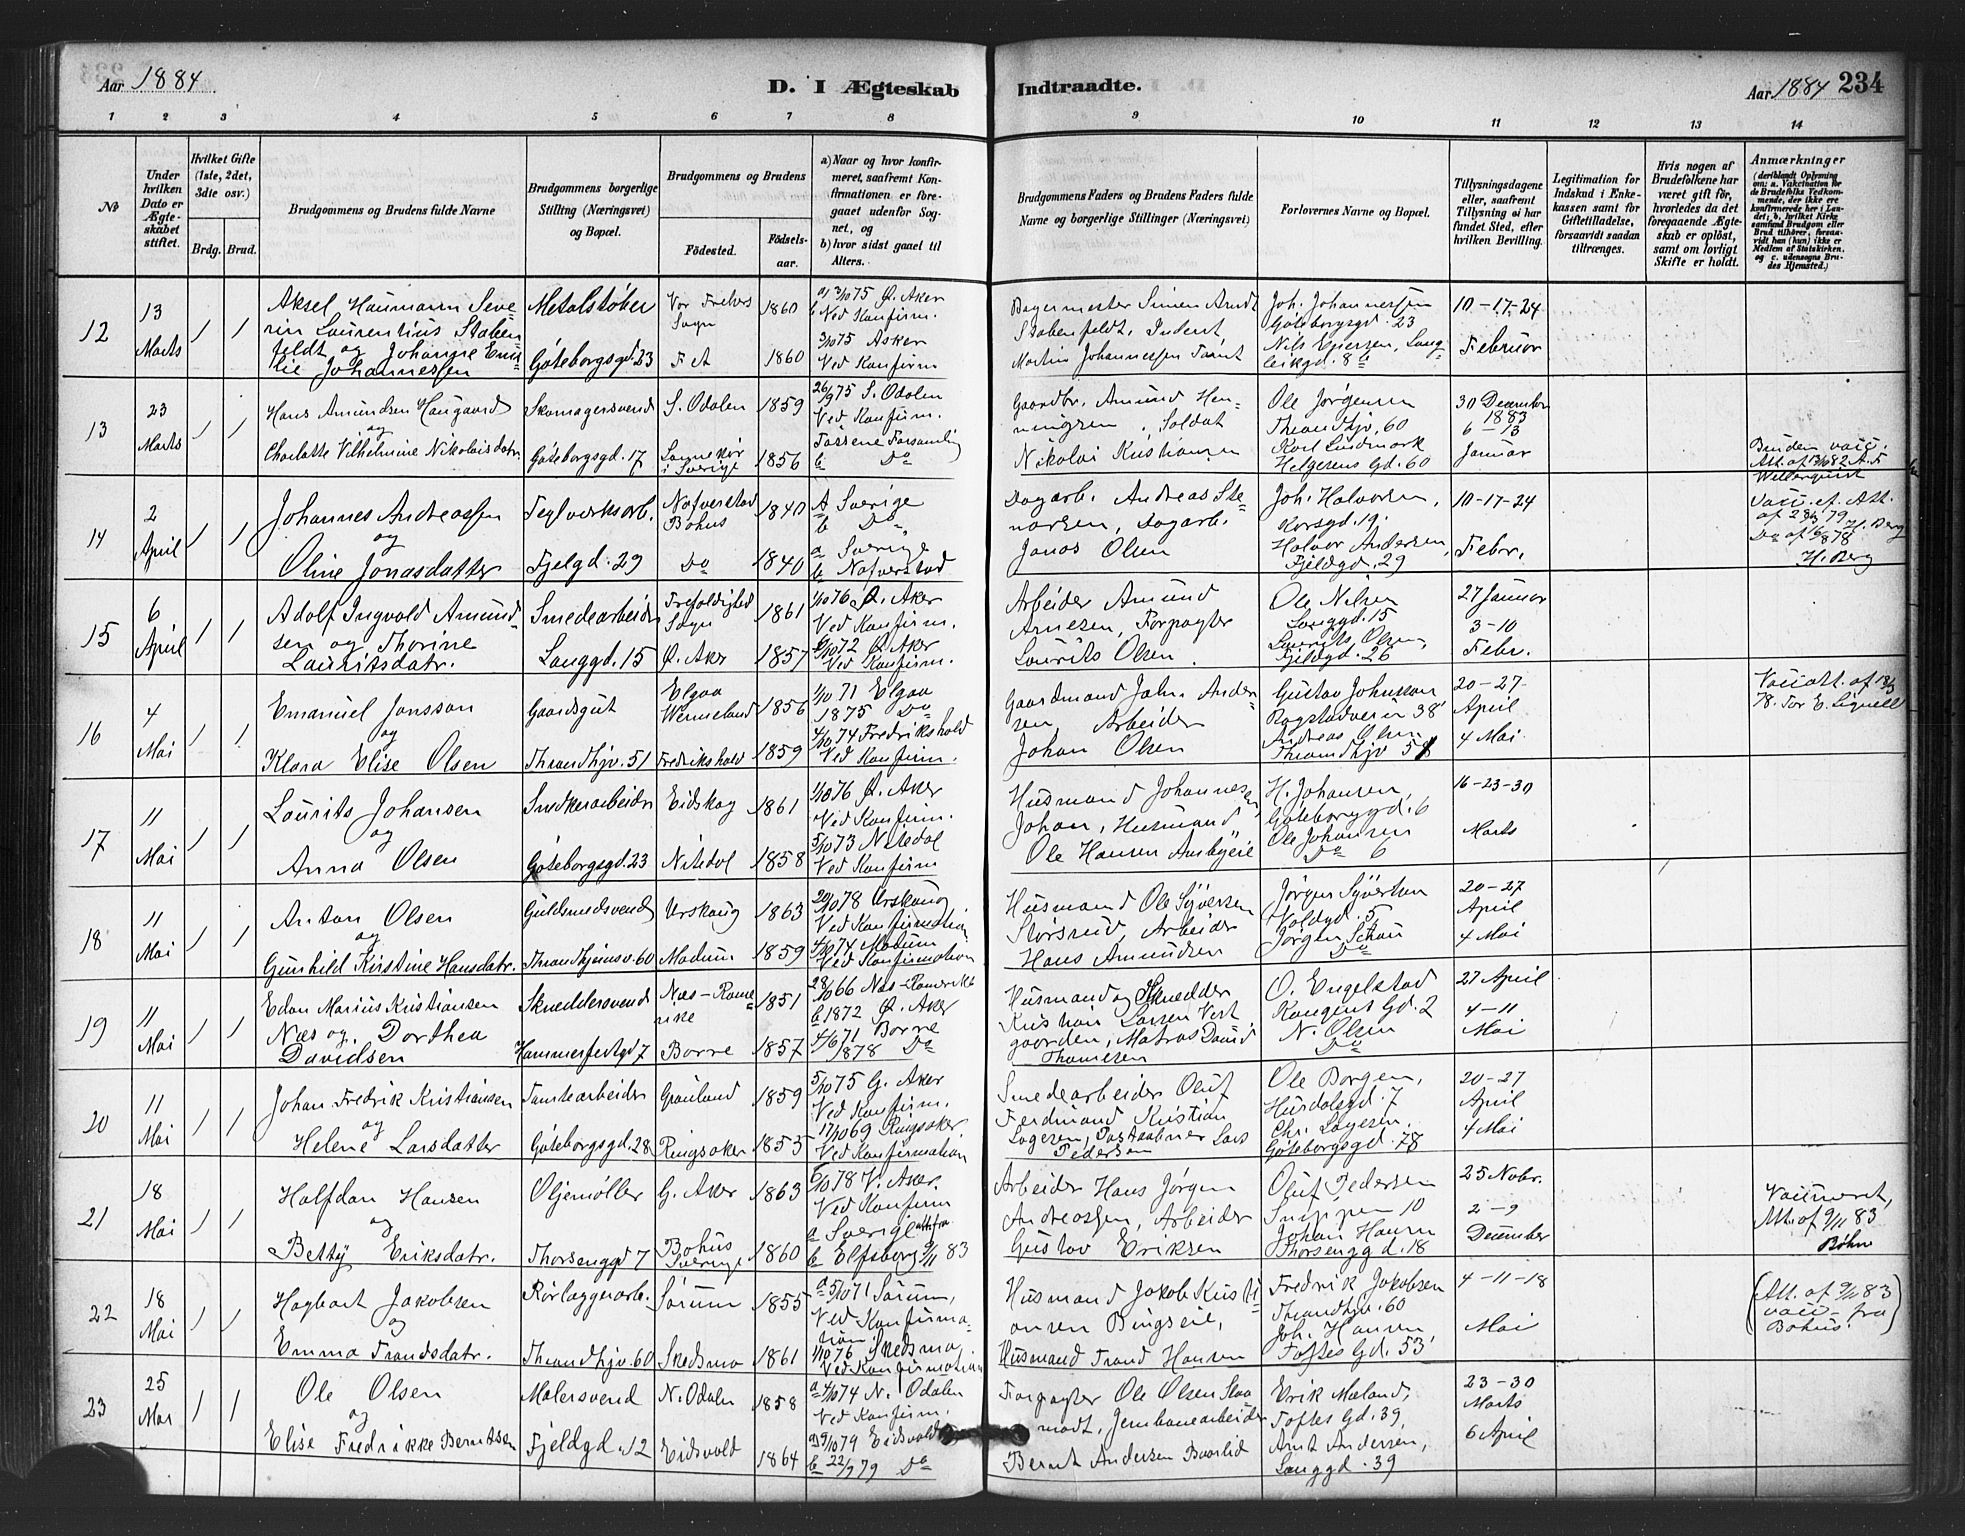 Aar 1884
D. I Ægteskab Indtraadte.
Aar 1884 234
1 2 3 4 5 6 7 8 9 10 11 12 13 14
No
Under hvilken Dato er Ægteskabet stiftet.
Hvilket Gifte (1ste, 2det, 3die osv.)
Brdg. Brud.
Brudgommens og Brudens fulde Navne
Brudgommens borgerlige Stilling (Næringsvei) og Bopæl.
Brudgommens og Brudens
Fødested. Fødselsaar.
a) Naar og hvor konfirmeret, saafremt Konfirmationen er foregaaet udenfor Sognet, og
b) hvor sidst gaaet til Alters.
Brudgommens Faders og Brudens Faders fulde Navne og borgerlige Stillinger (Næringsvei)
Forlovernes Navne og Bopæl.
Tillysningsdagene eller, saafremt Tillysning ei har fundet Sted, efter hvilken Bevilling.
Legitimation for Indskud i Enkekassen samt for Giftetilladelse, forsaavidt saadan tiltrænges.
Hvis nogen af Brudefolkene har været gift før, hvorledes da det foregaaende Ægteskab er opløst, samt om lovligt Skifte er holdt.
Anmærkninger
(deriblandt Oplysning om: a. Vakcination for de Brudefolks Vedkommende, der ikke ere konfirmerede her i Landet; b. hvilket Kirkesamfund Brudgom eller Brud tilhører, forsaavidt han (hun) ikke er Medlem af Statskirken, og c. udensogns Brudes Hjemsted.)
12
13 Marts
1 1
Aksel Haumann Severin Laurentius Stabenfeldt og Johanne Emilie Johannessen
Metalstøber
Göteborgsgd. 23
Vor Frelsers Sogn 1860
F A 1860
a 3/10 75 Ø. Aker
b Ved Konfirm.
3/10 75 Asker
Ved Konfirm
Simen Arndt Stabenfeldt,
Martin Johannessen
Joh. Johannessen
Göteborgsgd. 23
Nils
10-17-24
Februar
13
23 Marts
1 1
Hans Amundsen Haugaard
og
Charlotte Vilhelmine Nikolaisdatr
Skomagersvend
Göteborgsgd. 17
S. Odalen 1859
i Sverige 1856
26/9 75 S. Odalen
Ved Konfirm.
b Do
Gaardbr. Amund Henningsen, Soldat
Nikolai Kristiansen
Ole Jörgensen
Throndhjv. 60
Karl Lindmark
Helgesens Gd. 60
30 December
1883
6-13
Januar
Bruden vacc.
14
2 April
1 1
Johannes Andreassen
og
Oline Jonasdatter
Teglverksarb.
Fjelgd. 29
Nafverstad
Bohus 1840
Do 1840
A Sverige
b Do
a Sverige
b Nafverstad
Dagarb. Andreas Stenarsen, Dagarb.
Jonas Olsen
Joh. Halvorsen,
Korsgd. 19.
Halvor Andersen,
Fjeldgd. 29
10-17-24
Febr.
H. Berg
15
6 April
1 1
Adolf Ingvald Amundsen og Thorine
Lauritsdatr.
Smedearbeider
Langgd. 15
Trefoldighed
Sogn 1861
Ø. Aker 1857
1/10 76 Ø. Aker
Ved Konfirm.
6/10 72 Ø. Aker
Ved Konfirm.
Arbeider Amund
Arnesen, Forpagter
Laurits Olsen.
Ole Nilsen
Langgd. 15
Laurits Olsen,
Fjeldgd. 26
27 Januar
3-10
Febr.
16
4 Mai
1 1
Emanuel Jonsson
og
Klara Elise Olsen
Gaardsgut
Throndhjv. 51
Elgaa
Wermeland 1856
Fredrikshald 1859
1/10 71 Elgaa
1875 Do
4/10 74 Fredrikshald
Ved Konfirm.
Gaardmand Jahn Andersen Arbeider
Johan Olsen
Gustav Johnsson
38
Andreas Olsen
Throndhjv 58
20-27
April
4 Mai
17
11 Mai
1 1
Laurits Johansen
og
Anna Olsen
Snedkerarbeider
Göteborgsgd. 23
Eidskog 1861
Nitedal 1858
1/10 76 Ø. Aker
Ved Konfirm.
5/10 73 Nitedal
Ved Konfirm
Husmand Johannes
Johan, Husmand
Ole Hansen
H. Johansen,
Göteborggd. 6
Ole Johansen
Do 6
16-23-30
Marts
18
11 Mai
1 1
Anton Olsen
og
Gunhild Kirstine Hansdatr.
Guldsmedsvend
Throndhjemsv. 60
Urskoug 1863
Modum 1859
20/10 78 Urskoug
Ved Konfirmation
4/10 74 Modum
Ved Konfirmation
Husmand Ole Syversen
Störsrud, Arbeider
Hans Amundsen
Jörgen Syversen
Voldgd. 5
Jörgen
Do
20-27
April
4 Mai
19
11 Mai
1 1
Edon Marius Kristiansen
Næs og Dorthea
Davidsen
Skræddersvend
Hammerfestgd 7
Næs-Romerike 1851
Borre 1857
28/10 66 Næs-Romerike
b 1872 Ø. Aker
4/6 71 Borre
1878 Do
Husmand og Skrædder
Kristian Larsen Vestgaarden, Matros David
Thomesen
O. Engelstad
Kongens Gd. 2
N. Olsen
Do
27 April
4-11
Mai
20
11 Mai
1 1
Johan Fredrik Kristiansen
og
Helene Larsdatter
Tomtearbeider
Göteborgsgd. 28
Grønland 1859
Ringsaker 1855
5/10 75 G. Aker
Ved Konfirm.
17/10 69 Ringsaker
Ved Konfirmation
Smedearbeider Oluf
Ferdinand Kristian
Lars
Pedersen
Ole Borgen,
Hersdalsgd. 7
Göteborgsgd. 78
20-27
April
4 Mai
21
18 Mai
1 1
Halfdan Hansen
og
Betty Eriksdatr.
Oljemøller
Thorsenggd 7
G. Aker 1863
Bohus
Sverige 1860
6/10 78 V. Aker.
Ved Konfirm
a Sverige att. fra
b Elfsborg 9/11 83
Arbeider Hans Jörgen
Andreassen, Arbeider
Gustav Eriksen
Oluf Pedersen
Snippen 10
Johan Hansen
Thorsenggd. 18
25 Novbr.
2-9
December
Vaccineret,
Att. af 9/11 83
Böhn
22
18 Mai
1 1
Hagbart Jakobsen
og
Emma Trondsdatr.
Rørlæggerarb.
Throndhjv. 60
Sørum 1855
Skedsmo 1861
a 5/10 71 Sørum,
Ved Konfirmation.
1/10 76 Skedsmo
Ved Konfirmation
Husmand Jakob Kristiansen Bingseie,
Husmand Trond Hansen
Fredrik Jakobsen
Throndhjv. 60
Joh. Hansen
Toftes Gd. 53
4-11-18
Mai
(Att. af 9/11 83
vacc. fra
Bohus.)
23
25 Mar
1 1
Ole Olsen
og
Elise Fredrikke Berntsen
Malersvend
Fjeldgd. 12
N. Odalen 1858
Eidsvold 1864
a 4/10 74 N. Odalen
Ved Konfirm.
a 9/10 79 Eidsvold
b 22/9 79 Do
Forpagter Ole Olsen
Jernbanearbeider
Bernt Andersen
Erik Mæland,
Toftes Gd. 39,
Arnt Andersen,
Langgd. 39
23-30
Marts
6 April